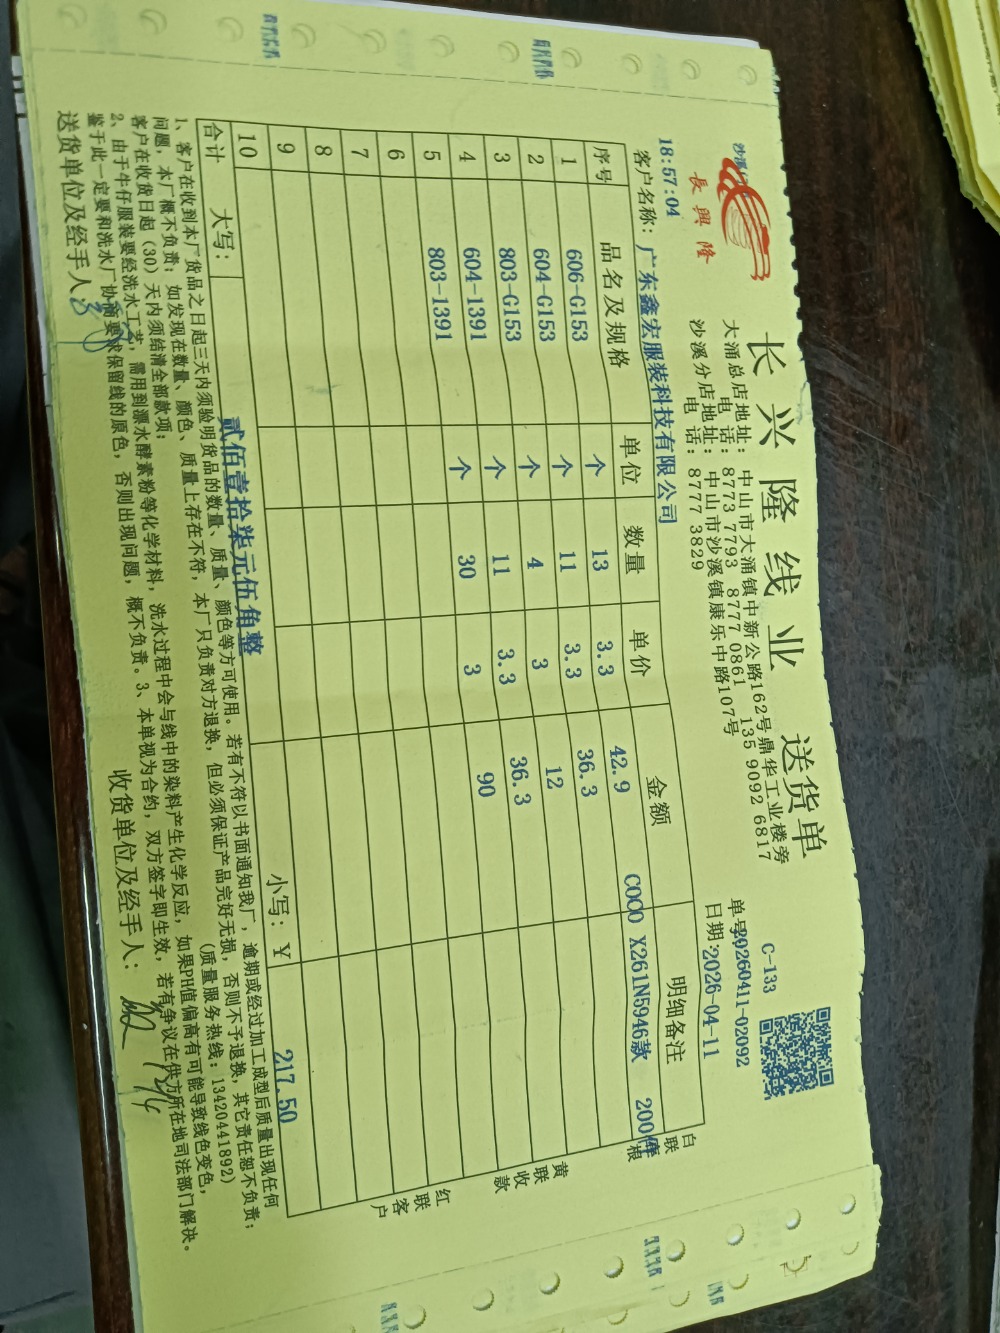 长兴隆线业 送货单
長興隆
C-133
大涌总店地址: 中山市大涌镇中新公路162号鼎华工业楼旁
电 话: 8773 7793 8777 0861 135 9092 6817
沙溪分店地址: 中山市沙溪镇康乐中路107号
电 话: 8777 3829
单号: 20260411-02092
日期: 2026-04-11
18:57:04
客户名称: 广东鑫宏服装科技有限公司
序号 品名及规格 单位 数量 单价 金额 明细备注
1 606-G153 个 13 3.3 42.9 COCO X261N5946款 200件
2 604-G153 个 11 3.3 36.3
3 803-G153 个 4 3 12
4 604-1391 个 11 3.3 36.3
5 803-1391 个 30 3 90
6
7
8
9
10
合计 大写: 贰佰壹拾柒元伍角整 小写: ¥ 217.50
白联存根
黄联收款
红联客户
1、客户在收到本厂货品之日起三天内须验明货品的数量、质量、颜色等方可使用。若有不符以书面通知我厂，逾期或经过加工成型后质量出现任何
问题，本厂概不负责；如发现在数量、颜色、质量上存在不符，本厂只负责对方退换，但必须保证产品完好无损，否则不予退换，其它责任恕不负责；
客户在收货日起（30）天内须结清全部款项； (质量服务热线: 13420441892)
2、由于牛仔服装要经洗水工艺，需用到漂水酵素粉等化学材料，洗水过程中会与线中的染料产生化学反应，如果PH值偏高有可能导致线色变色，
鉴于此一定要和洗水厂协商要求保留线的原色，否则出现问题，概不负责。3、本单视为合约，双方签字即生效，若有争议在供方所在地司法部门解决。
送货单位及经手人: 收货单位及经手人: